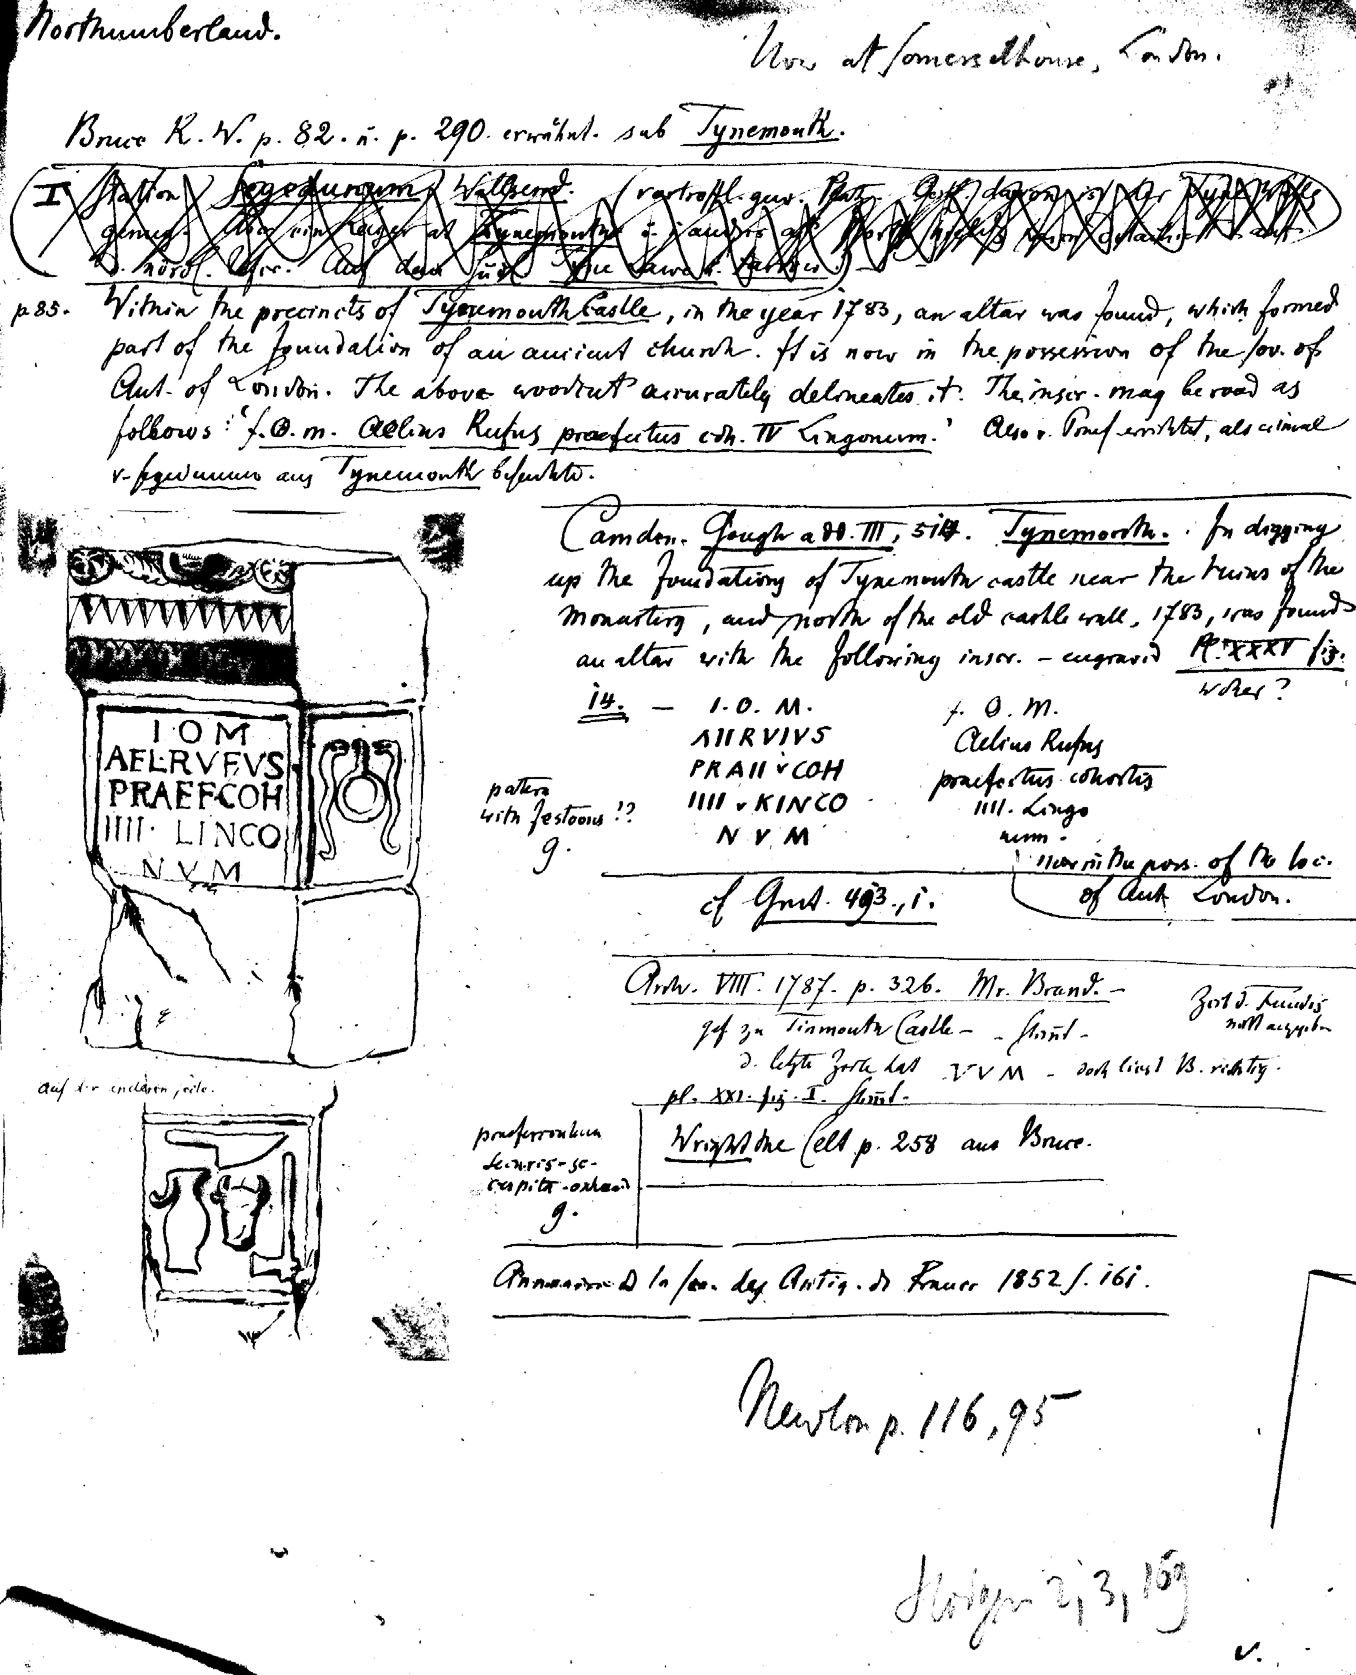 Northumberland.
Now at Somersethouse, London.
Bruce R. W. p. 82. u. p. 290. erwähnt. sub Tynemouth.
I Station Segedunum Wallsend.
p 85. Within the precincts of Tynemouth Castle, in the year 1783, an altar was found, which formed
part of the foundation of an ancient church. It is now in the possession of the Soc. of
Ant. of London. The above woodcut accurately delineates it. The inscr. may be read as
follows: 'J. O. m. Aelius Rufus praefectus coh. IV Lingonum.' Also v. Praef errichtet, als einmal
v. Segedunum aus Tynemouth besuchte.
Camden. Gough add. III, 514. Tynemouth. In digging
up the foundations of Tynemouth castle near the ruins of the
monastery, and north of the old castle wall, 1783, was found
an altar with the following inscr. – engraved Pl. XXXV fig.
woher?
14. – I. O. M.
AIIRVIVS
PRAII v COH
IIII v KINCO
N V M
J. O. M.
Aelius Rufus
praefectus cohortis
IIII. Lingo
num.
now in the poss. of the Soc.
of Ant. London.
patera
with festoons!?
g.
I O M
AEL·RVFVS
PRAEF·COH
IIII· LINCO
N V M
cf Grut. 493., 1.
Arch. VIII. 1787. p. 326. Mr. Brand. –
Zeit d. Fundes
nicht angegeben
gef zu Tinmouth Castle –
d. letzte Zeile hat VVM – doch liest B. richtig.
pl. XXI. fig. I.
Auf der anderen Seite.
praeferriculum
securis - se-
cespita -
g.
Wright the Celt p. 258 aus Bruce.
Annuaire d la soc. des Antiq. de France 1852 S. 161.
Newton p. 116, 95
Hodgson 2, 3, 169
v.